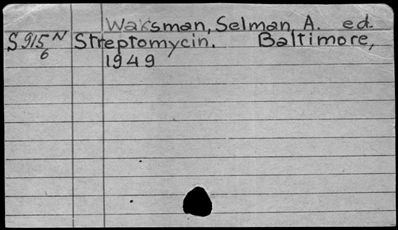 Waksman, Selman, A. ed.
S 915 N Streptomycin. Baltimore,
6
1949